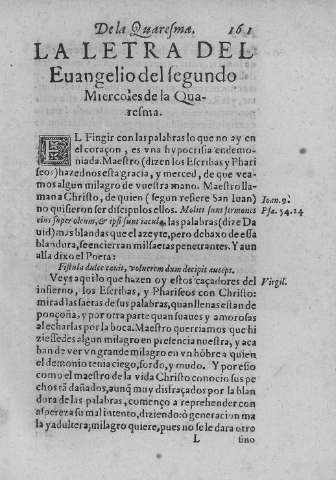 De la Quaresma. 161
LA LETRA DEL
Euangelio del segundo
Miercoles de la Qua-
resma.
EL Fingir con las palabras lo que no ay en
el coraçon, es vna hypocrisia ende-
moniada. Maestro (dizen los Escribas y Phari
seos) hazednos esta gracia, y merced, de que vea
mos algun milagro de vuestra mano. Maestro lla-
man a Christo, de quien (segun refiere San Iuan) Ioan. 9.
no quisieron ser discipulos ellos. Moliti sunt sermones Psa. 54. 24
eius super oleum, & ipsi sunt iacula, las palabras (dize Da
uid) mas blandas que el azeyte, pero debaxo de essa
blandura, se encierran mil saetas penetrantes. Y aun
alla dixo el Poeta:
Fistula dulce canit, volucrem dum decipit auceps. Virgil.
Veys aqui lo que hazen oy estos caçadores del
infierno, los Escribas, y Phariseos con Christo:
mirad las saetas de sus palabras, quan llenas estan de
ponçoña, y por otra parte quan suaues y amorosas
al echarlas por la boca. Maestro querriamos que hi
ziessedes algun milagro en presencia nuestra, y aca
ban de ver vn grande milagro en vn hõbre a quien
el demonio tenia ciego, sordo, y mudo. Y por esso
como el maestro de la vida Christo conocio sus pe
chos tã dañados, aunq̃ muy disfraçados por la blan
dura de las palabras, començo a reprehender con
aspereza su mal intento, diziendo: ò generacion ma
la y adultera; milagro quiere, pues no se le dara otro
L sino